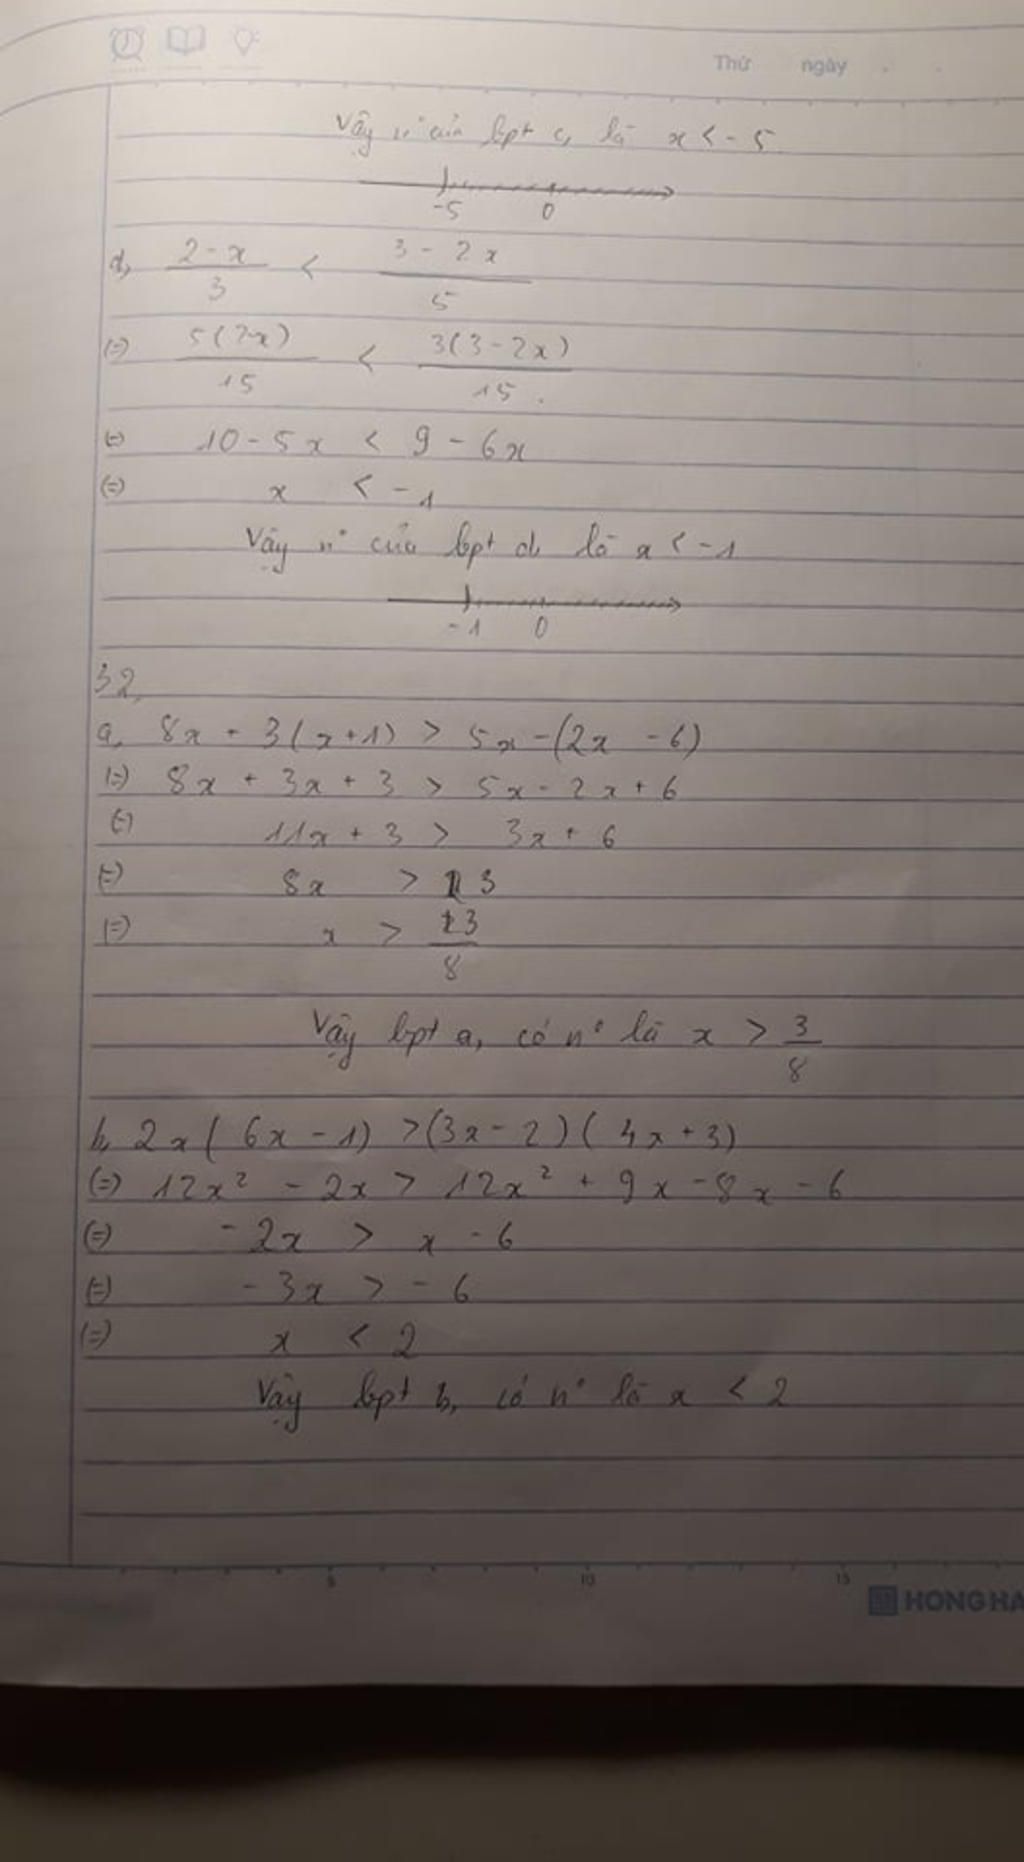 Thứ ngày
Vậy n° của bpt c, là x < -5
-5 0
d, \frac{2-x}{3} < \frac{3-2x}{5}
(=) \frac{5(2-x)}{15} < \frac{3(3-2x)}{15}.
(=) 10-5x < 9-6x
(=) x < -1
Vậy n° của bpt d, là x < -1
-1 0
32,
a, 8x + 3(x+1) > 5x-(2x-6)
(=) 8x + 3x + 3 > 5x-2x+6
(=) 11x + 3 > 3x + 6
(=) 8x > 3
(=) x > \frac{3}{8}
Vậy bpt a, có n° là x > \frac{3}{8}
b, 2x(6x-1) > (3x-2)(4x+3)
(=) 12x² - 2x > 12x² + 9x - 8x - 6
(=) -2x > x - 6
(=) -3x > -6
(=) x < 2
Vậy bpt b, có n° là x < 2
5 10 15
HONG HA